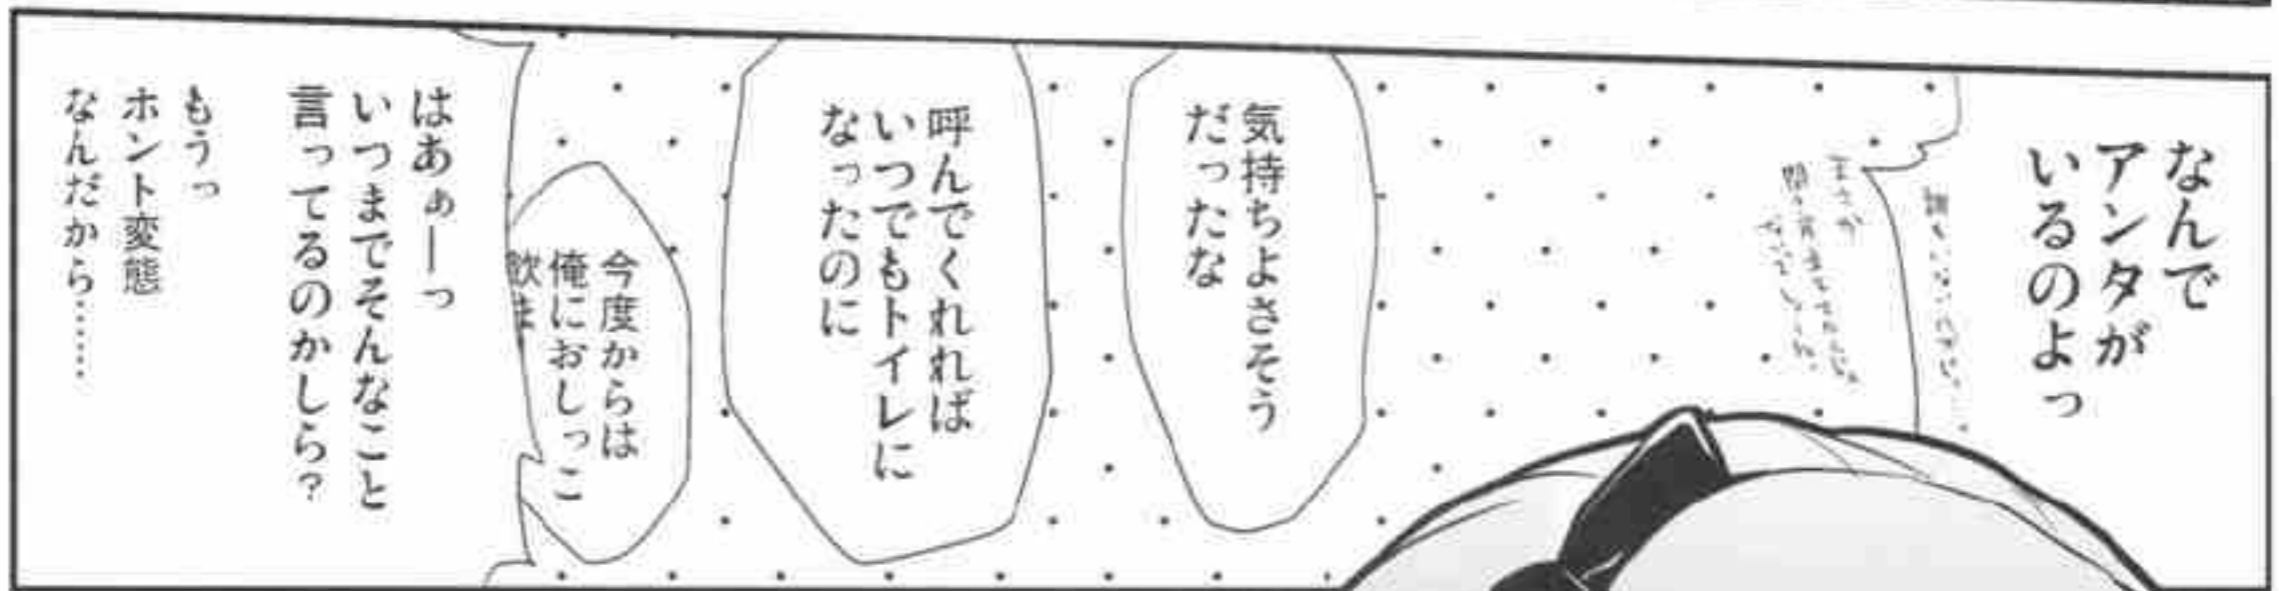 なんで
アンタが
いるのよっ
気持ちよさそう
だったな
呼んでくれれば
いつでもトイレに
なったのに
今度からは
俺におしっこ
飲ま
はあぁーっ
いつまでそんなこと
言ってるのかしら?
もうっ
ホント変態
なんだから……